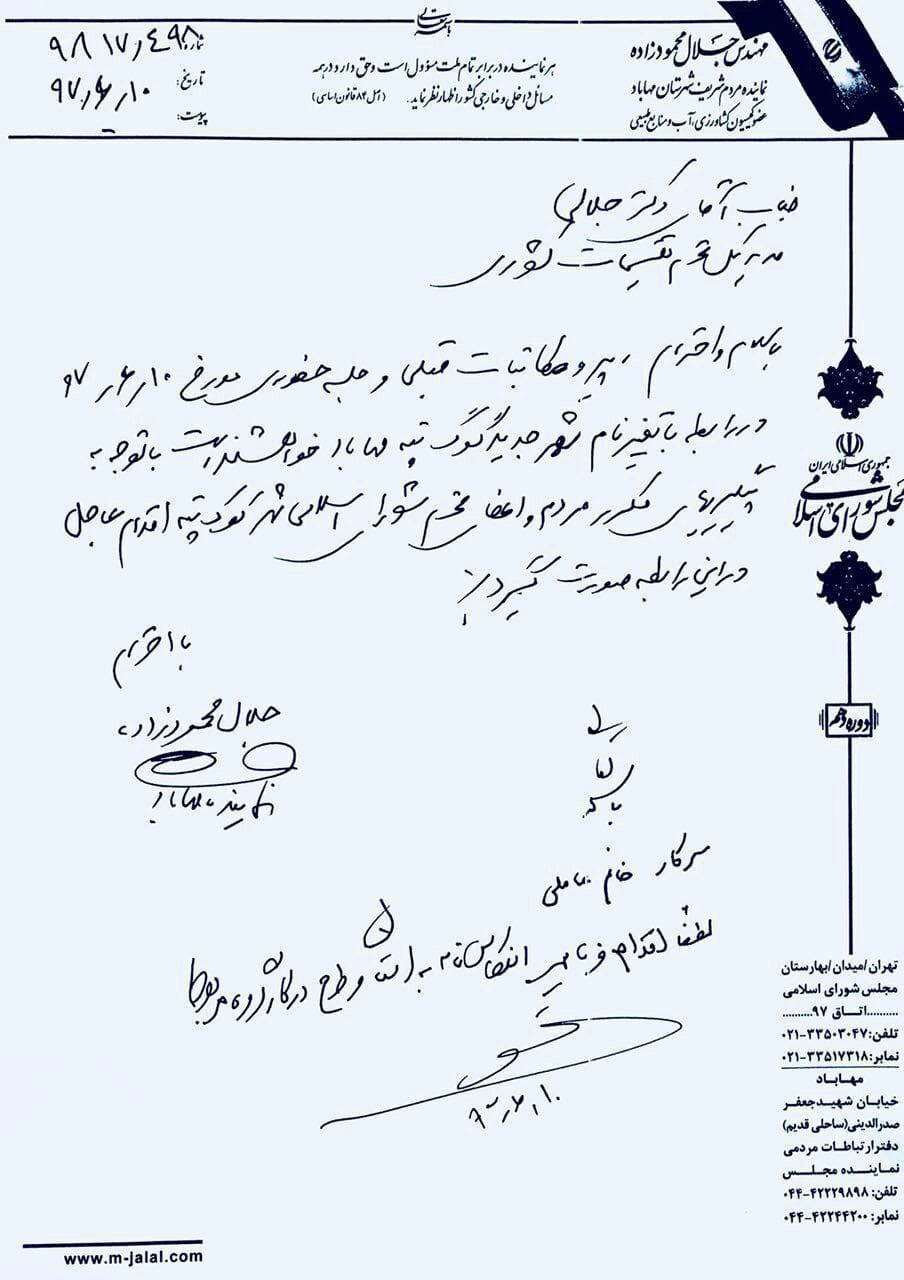 باسمه تعالی
مهندس جلال محمودزاده
نماینده مردم شریف شهرستان مهاباد
عضو کمیسیون کشاورزی، آب و منابع طبیعی
هر نماینده در برابر تمام ملت مسؤول است و حق دارد در همه
مسائل داخلی و خارجی کشور اظهار نظر نماید. (اصل ۸۴ قانون اساسی)
شماره:
تاریخ: ۹۷،۶،۱۰
پیوست:
جناب آقای دکتر جلالی
مدیر کل محترم تقسیمات کشوری
با سلام و احترام، پیرو مکاتبات قبلی و جلسه حضوری مورخ ۱۰ر۶ر۹۷
در رابطه با تغییر نام شهر جدید گوگ تپه مهاباد خواهشمند است با توجه به
پیگیریهای مکرر مردم و اعضای محترم شورای اسلامی شهر گوک تپه اقدام عاجل
در این رابطه صورت گیرد
با احترام
جلال محمودزاده
نماینده مهاباد
سرکار خانم
لطفا اقدام فرمایید انعکاس نامه به استان و طرح در کارگروه مربوطه
جمهوری اسلامی ایران
مجلس شورای اسلامی
دوره دهم
تهران/میدان/بهارستان
مجلس شورای اسلامی
..........اتاق ۹۷..........
تلفن: ۳۳۵۰۳۰۴۷-۰۲۱
نمابر: ۳۳۵۱۷۳۱۸-۰۲۱
مهاباد
خیابان شهید جعفر
صدرالدینی (ساحلی قدیم)
دفتر ارتباطات مردمی
نماینده مجلس
تلفن: ۴۲۲۲۹۸۹۸-۰۴۴
نمابر: ۴۲۲۴۴۲۰۰-۰۴۴
www.m-jalal.com